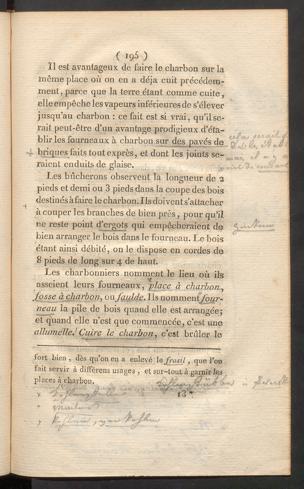 ( 195 )
Il est avantageux de faire le charbon sur la
même place où on en a déja cuit précédem-
ment, parce que la terre étant comme cuite,
elle empêche les vapeurs inférieures de s'élever
jusqu'au charbon : ce fait est si vrai, qu'il se-
rait peut-être d'un avantage prodigieux d'éta-
blir les fourneaux à charbon sur des pavés de
briques faits tout exprès, et dont les joints se-
raient enduits de glaise.
Les bûcherons observent la longueur de 2
pieds et demi ou 3 pieds dans la coupe des bois
destinés à faire le charbon. Ils doivent s'attacher
à couper les branches de bien près, pour qu'il
ne reste point d'ergots qui empêcheraient de
bien arranger le bois dans le fourneau. Le bois
étant ainsi débité, on le dispose en cordes de
8 pieds de long sur 4 de haut.
Les charbonniers nomment le lieu où ils
asseient leurs fourneaux, place à charbon,
fosse à charbon, ou faulde. Ils nomment four-
neau la pile de bois quand elle est arrangée;
et quand elle n'est que commencée, c'est une
allumelle. Cuire le charbon, c'est brûler le
fort bien, dès qu'on en a enlevé le frasil, que l'on
fait servir à différens usages, et sur-tout à garnir les
places à charbon.
13 *